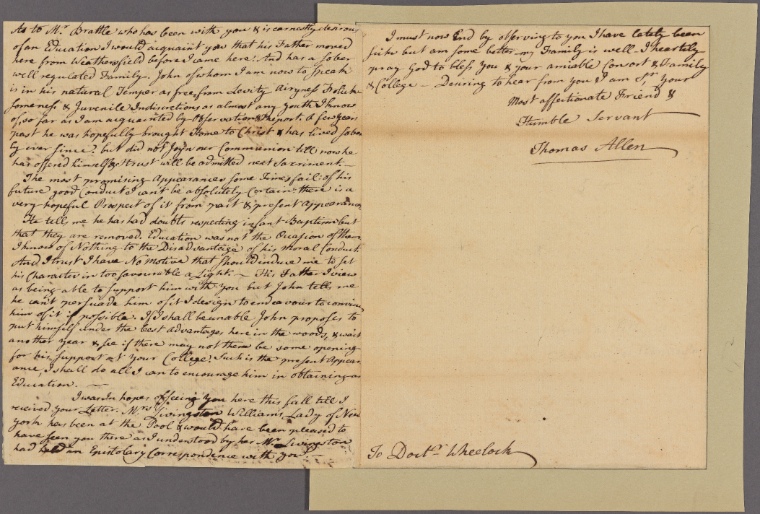 As to Mr. Brattle who has been with you & is earnestly desirous
of an Education I would acquaint you that his Father moved
here from Weathersfield before I came here: And has a sober
well regulated Family. John of whom I am now to speak
is in his natural Temper as free from Levity Airyness Frolick
someness & Juvenile Indiscretions as almost any youth I know
of so far as I am acquainted by Observation & Report. A few years
past he was hopefully brought Home to Christ & has lived sober
ly ever since: but did not Join our Communion till now he
has offered himself & I trust will be admitted next Sacrament
The most promising Appearances some Times fail of his
future good Conduct I can't be absolutely Certain there is a
very hopeful Prospect of it from past & present Appearances
He tell me he has had doubts respecting infant Baptism but
that they are removed. Education was not the Occasion of them
I know of Nothing to the Disadvantage of his moral Conduct
And I trust I have No Motive that should induce me to set
his Character in too favourable a Light. — His Father I view
as being able to support him with you but John tells me
he can't persuade him of it I design to endeavour to convince
him of it if possible. If I shall be unable John proposes to
put himself under the best advantages here in the woods, & wait
another year & see if there may not then be some opening
for his support at your College: Such is the present Appear
ance, I shall do all I can to encourage him in obtaining an
Education. —
I was in hopes of seeing you here this fall till I
received your Letter. Mrs Livingston Williams, Lady of New
York has been at the Pool & would have been pleased to
have seen you there and understood by her Mr Livingston
had had an Epistolary Correspondence with you. —
I must now End by observing to you I have lately been
sick but am some better — my Family is well — I heartily
pray God to bless you & your amiable Consort & Family
& College — Desiring to hear from you & I am Sr. your
Most affectionate Friend &
Humble Servant
Thomas Allen
To Doctr. Wheelock